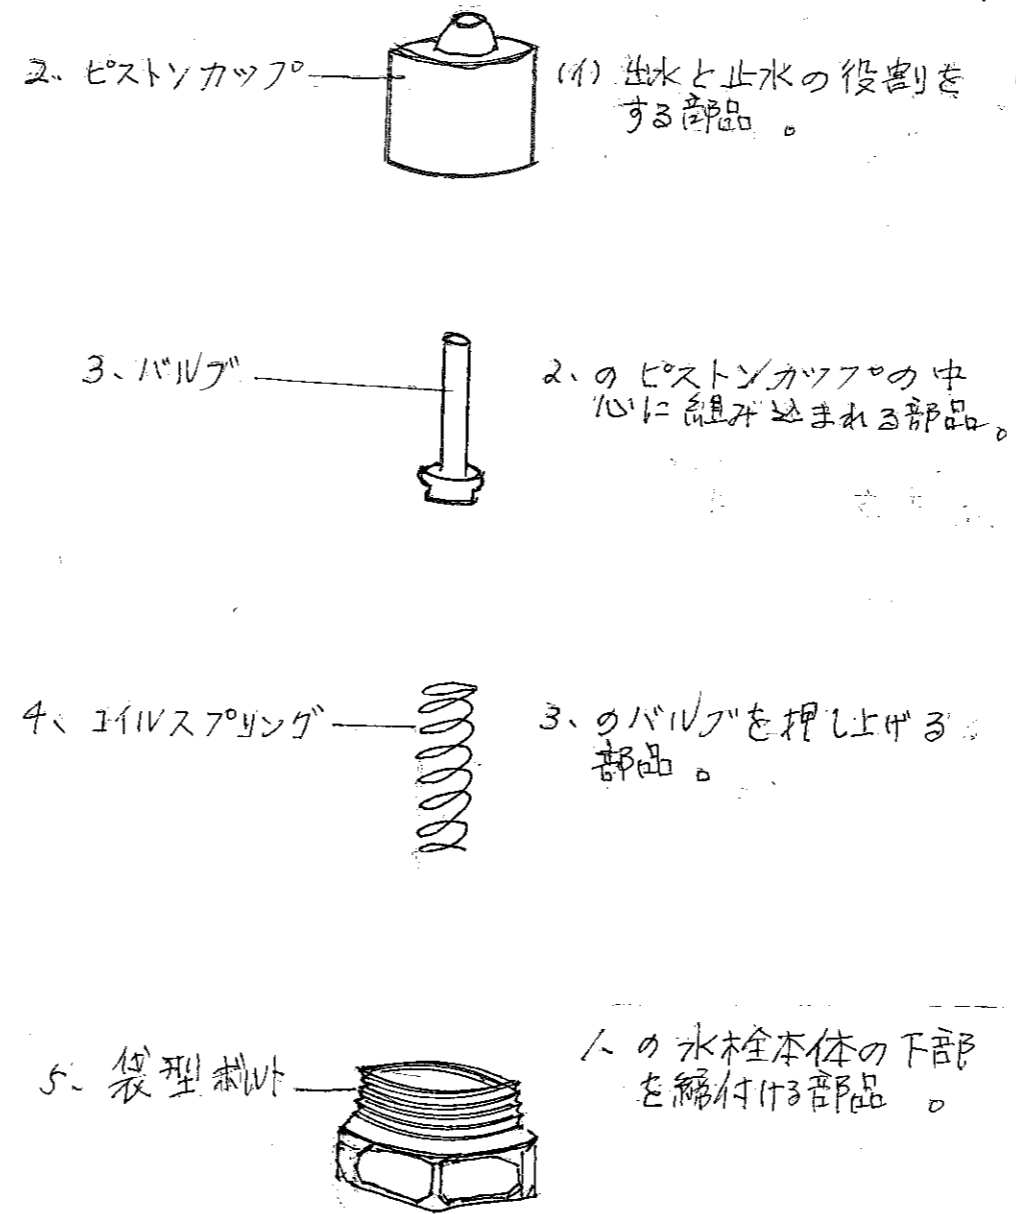 2、ピストンカップ
(イ) 出水と止水の役割を
する部品。
3、バルブ
2、のピストンカップの中
心に組み込まれる部品。
4、コイルスプリング
3、のバルブを押し上げる
部品。
5、袋型ボルト
1、の水栓本体の下部
を締付ける部品。